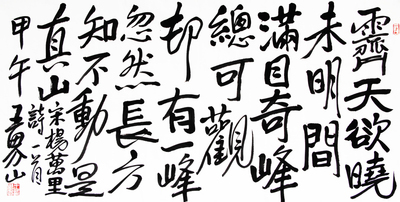 霽天欲曉
未明間
滿目奇峰
總可觀
却有一峰
忽然長方
知不動是
真山
宋楊萬里
詩一首
甲午
王界山